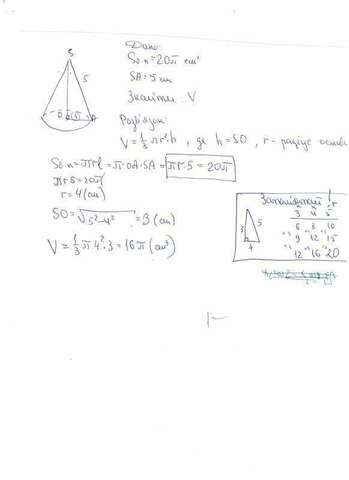 S
5
O
A
Дано:
Sб.п.=20π см²
SA=5 см
Знайти: V
Розв'язок
V=1/3 πr²·h, де h=SO, r-радіус основи
Sб.п.=πrl=π·OA·SA=πr·5=20π
πr5=20π
r=4(см)
SO=√5²-4²=3(см)
V=1/3 π4²·3=16π(см³)
Запам'ятай!
3 4 5
6 8 10
9 12 15
12 16 20
3
5
4